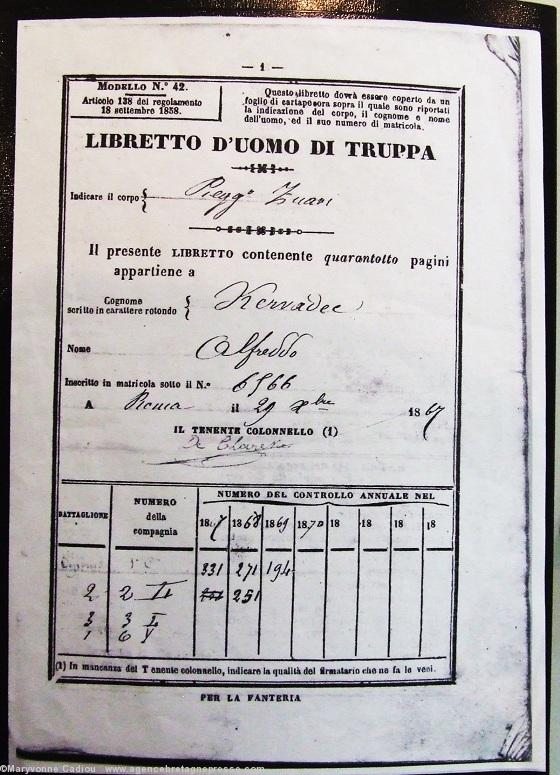 — 1 —
MODELLO N.° 42.
Articolo 138 del regolamento
18 settembre 1858.
Questo libretto dovrà essere coperto da un
foglio di carta pecora sopra il quale sono riportati
la indicazione del corpo, il cognome e nome
dell'uomo, ed il suo numero di matricola.
LIBRETTO D'UOMO DI TRUPPA
Indicare il corpo Zuavi
Il presente LIBRETTO contenente quarantotto pagini
appartiene a
Cognome
scritto in carattere rotondo
Kervadec
Nome Alfreddo
Inscritto in matricola sotto il N.° 6566
A Roma il 29 xbre 1867
IL TENENTE COLONNELLO (1)
De Charette
BATTAGLIONE
NUMERO
della
compagnia
NUMERO DEL CONTROLLO ANNUALE NEL
1867 1868 1869 1870 18 18 18 18
331 271 194
2 2 251
3 3
1 6
(1) In mancanza del Tenente colonnello, indicare la qualità del firmatario che ne fa le veci.
PER LA FANTERIA
©Maryvonne Cadiou www.agencebretagnepresse.com